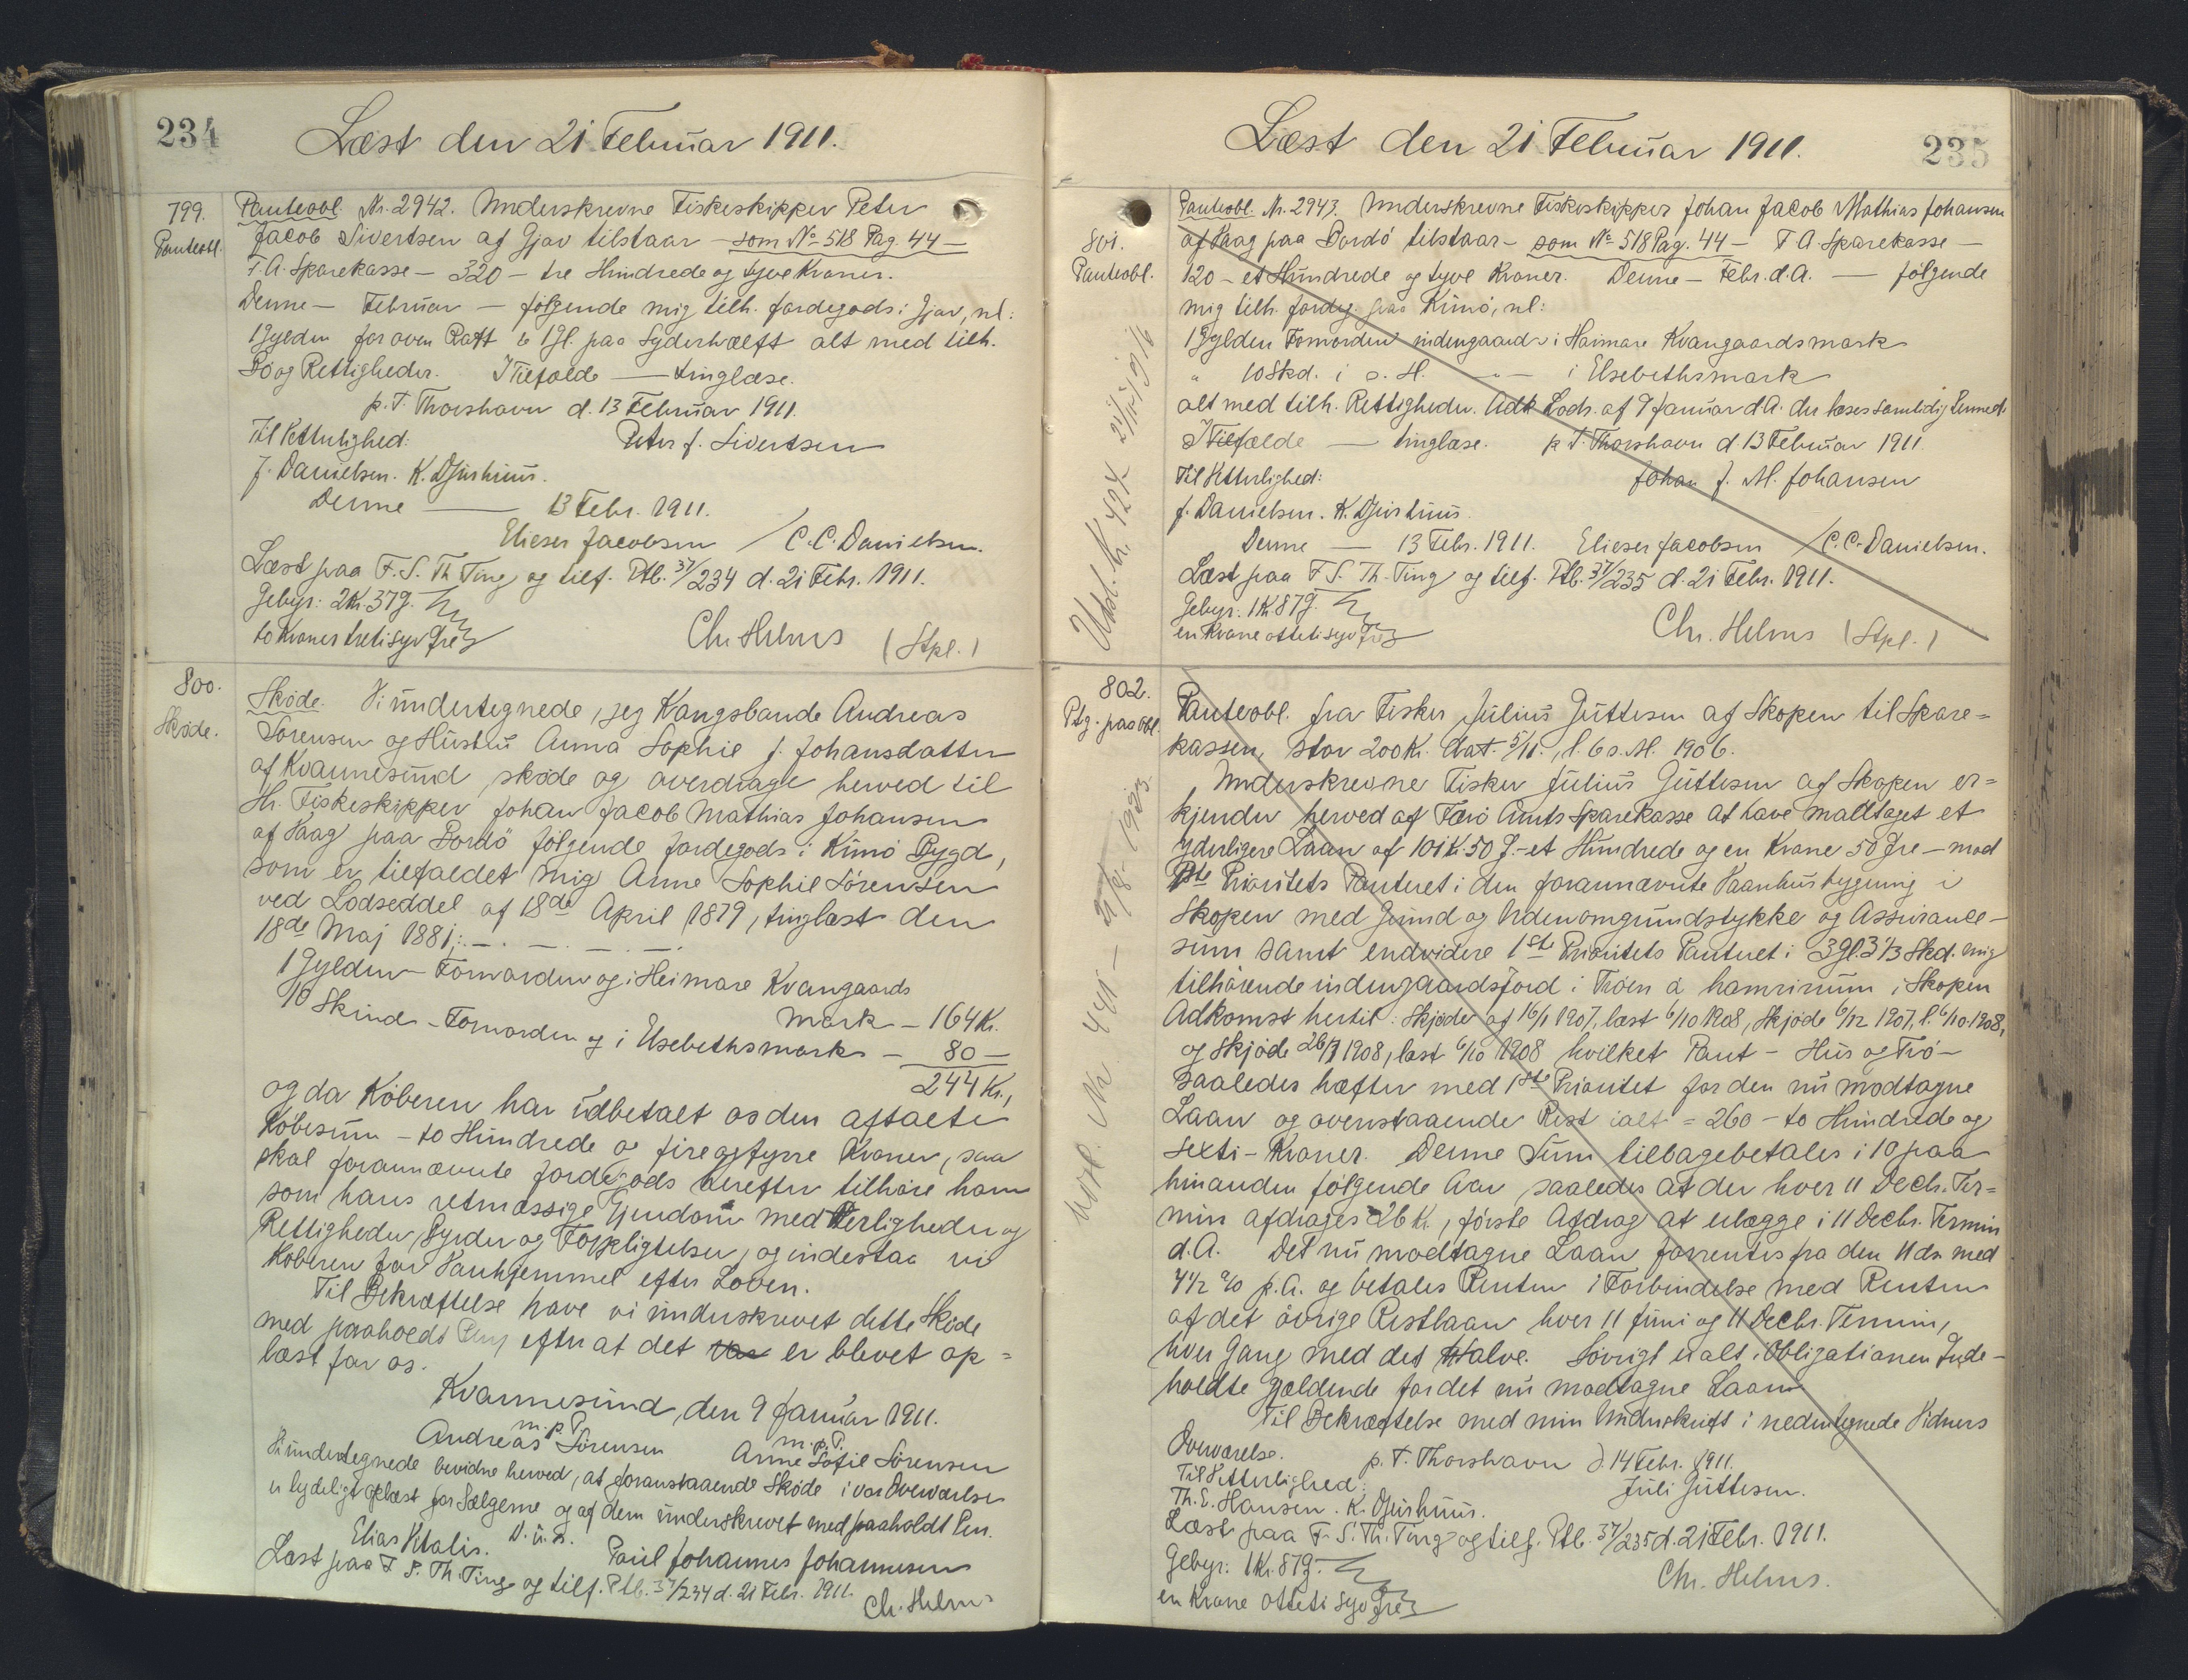 234
Læst den 21 Februar 1911.
799.
Panteobl.
Panteobl. Nr. 2942. Underskrevne Fiskeskipper Peter
Jacob Sivertsen af Gjov tilstaar - som No 518 Pag. 44 -
F. A. Sparekasse - 320 - tre Hundrede og tyve Kroner.
Denne - Februar - følgende mig tilh. Jordegods i Gjov, nl:
1 Gylden for oven Raft & 1 Gl. paa Syderhælft alt med tilh.
Bö og Rettigheder. I Tilfælde — tinglæse.
p. T. Thorshavn d. 13 Februar 1911.
Til Vitterlighed: Peter J. Sivertsen
J. Danielsen. K. Djurhuus.
Denne — 13 Febr. 1911.
Elieser Jacobsen / C. C. Danielsen.
Læst paa F. S. Th Ting og tilf. Ptb. 37/234 d. 21 Febr. 1911.
Gebyr: 2 Kr. 37 Ø.
to Kroner treti syv Øre
Chr. Helms (Stpl.)
800.
Skøde.
Skøde. Vi undertegnede, jeg Kongsbonde Andreas
Sørensen og Hustru Anna Sophie f. Johansdatter
af Kvannesund skøde og overdrage herved til
Hr. Fiskeskipper Johan Jacob Mathias Johansen
af Vaag paa Bordö følgende Jordegods i Kunö Bygd,
som er tilfaldet mig Anne Sophie Sørensen
ved Lodseddel af 18de April 1879, tinglæst den
18de Maj 1881;. — . — . — . —.
1 Gylden - Fornorden og i Heimare Kvangaards
Mark - 164 Kr.
10 Skind - Fornorden og i Elsebethsmark - 80 -
244 Kr.,
og da Køberen har udbetalt os den aftalte
Købesum - to Hundrede og fire og fyrre Kroner, saa
skal forannævnte Jordegods herefter tilhøre ham
som hans retmæssige Ejendom med Herligheder og
Rettigheder, Byrder og Forpligtelser, og indestaa vi
Køberen for Vanhjemmel efter Loven.
Til Bekræftelse have vi underskrevet dette Skøde
med paaholdt Pen, efter at det var er blevet op=
læst for os.
Kvannesund, den 9 Januar 1911.
m. p. P. m. p. P.
Andreas Sørensen Anne Sofie Sørensen
Vi undertegnede bevidne herved, at foranstaaende Skøde i vor Overværelse
er lydeligt oplæst for Sælgerne og af dem underskrevet med paaholdt Pen.
D. u. s.
Elias Vitalis. Poul Johannes Johannesen
Læst paa F. S. Th. Ting og tilf. Ptb. 37/234 d. 21 Febr. 1911.
Ch. Helms
Læst den 21 Februar 1911.
235
801.
Panteobl.
Udsl. tk. 424 1916
Panteobl. Nr. 2943. Underskrevne Fiskeskipper Johan Jacob Mathias Johansen
af Vaag paa Bordö tilstaar - som No 518 Pag. 44 - F A. Sparekasse -
120 - et Hundrede og tyve Kroner. Denne - Febr. d.A. — følgende
mig tilh. Jordeg. paa Kunö, nl:
1 Gylden Fornorden indengaards i Haimare Kvangaardsmark
" 10 Skd. i s. H. - " - i Elsebethsmark
alt med tilh. Rettigheder. Adk Lods. af 9 Januar d.A. der læses samtidig hermed.
I Tilfælde — tinglæse. p. T. Thorshavn d 13 Februar 1911.
Til Vitterlighed: Johan J. M. Johansen
J. Danielsen. K. Djurhuus
Denne — 13 Febr. 1911. Elieser Jacobsen / C. C. Danielsen.
Læst paa F. S. Th. Ting og tilf. Ptb. 37/235 d. 21 Febr. 1911.
Gebyr: 1 Kr. 87 Ø.
en Krone otteti syv Øre
Chr. Helms (Stpl.)
802.
Ptg. paa Obl.
Panteobl. fra Fisker Julius Guttesen af Skopen til Spare=
kassen, stor 200 Kr. dat. 5/11, l. 6 s. M. 1906.
Underskrevne Fisker Julius Guttesen af Skopen er=
kjender herved af Færö Amts Sparekasse at have modtaget et
yderligere Laan af 101 K. 50 Ø. - et Hundrede og en Krone 50 Øre - mod
1ste Prioritets Panteret i den forannævnte Vaanhusbygning i
Skopen med Grund og Udenomgrundstykke og Assurance-
sum samt endvidere 1ste Prioritets Panteret i 3 gl. 3 1/3 Skd. mig
tilhørende indengaardsjord i Tröen a hamrinum i Skopen
Adkomst hertil: Skjøder af 16/1 1907, læst 6/10 1908, Skjøde 6/12 1907, l. 6/10 1908,
og Skjøde 26/9 1908, læst 6/10 1908 hvilket Pant - Hus og Trö -
saaledes hæfter med 1ste Prioritet for den nu modtagne
Laan og ovenstaaende Rest ialt = 260 - to Hundrede og
sexti - Kroner. Denne Sum tilbagebetales i 10 paa
hinanden følgende Aar, saaledes at der hver 11 Decbr. Ter=
min afdrages 26 Kr., første Afdrag at erlægge i 11 Decbr. Termin
d. A. Det nu modtagne Laan forrentes fra den 11 ds. med
4 1/2 % p. A. og betales Renten i Forbindelse med Renten
af det övrige Restlaan hver 11 Juni og 11 Decbr. Termin,
hver Gang med det Halve. Iøvrigt er alt i Obligationen Inde-
holdte gjældende for det nu modtagne Laan.
Til Bekræftelse med min Underskrift i nedentegnede Vidners
Overværelse. p. T. Thorshavn d. 14 Febr. 1911.
Til Vitterlighed: Juli Guttesen.
Th. E. Hansen. K. Djurhuus.
Læst paa F. S. Th. Ting og tilf. Ptb. 37/235 d. 21 Febr. 1911.
Gebyr: 1 Kr. 87 Ø.
en Krone otteti syv Øre
Chr. Helms.